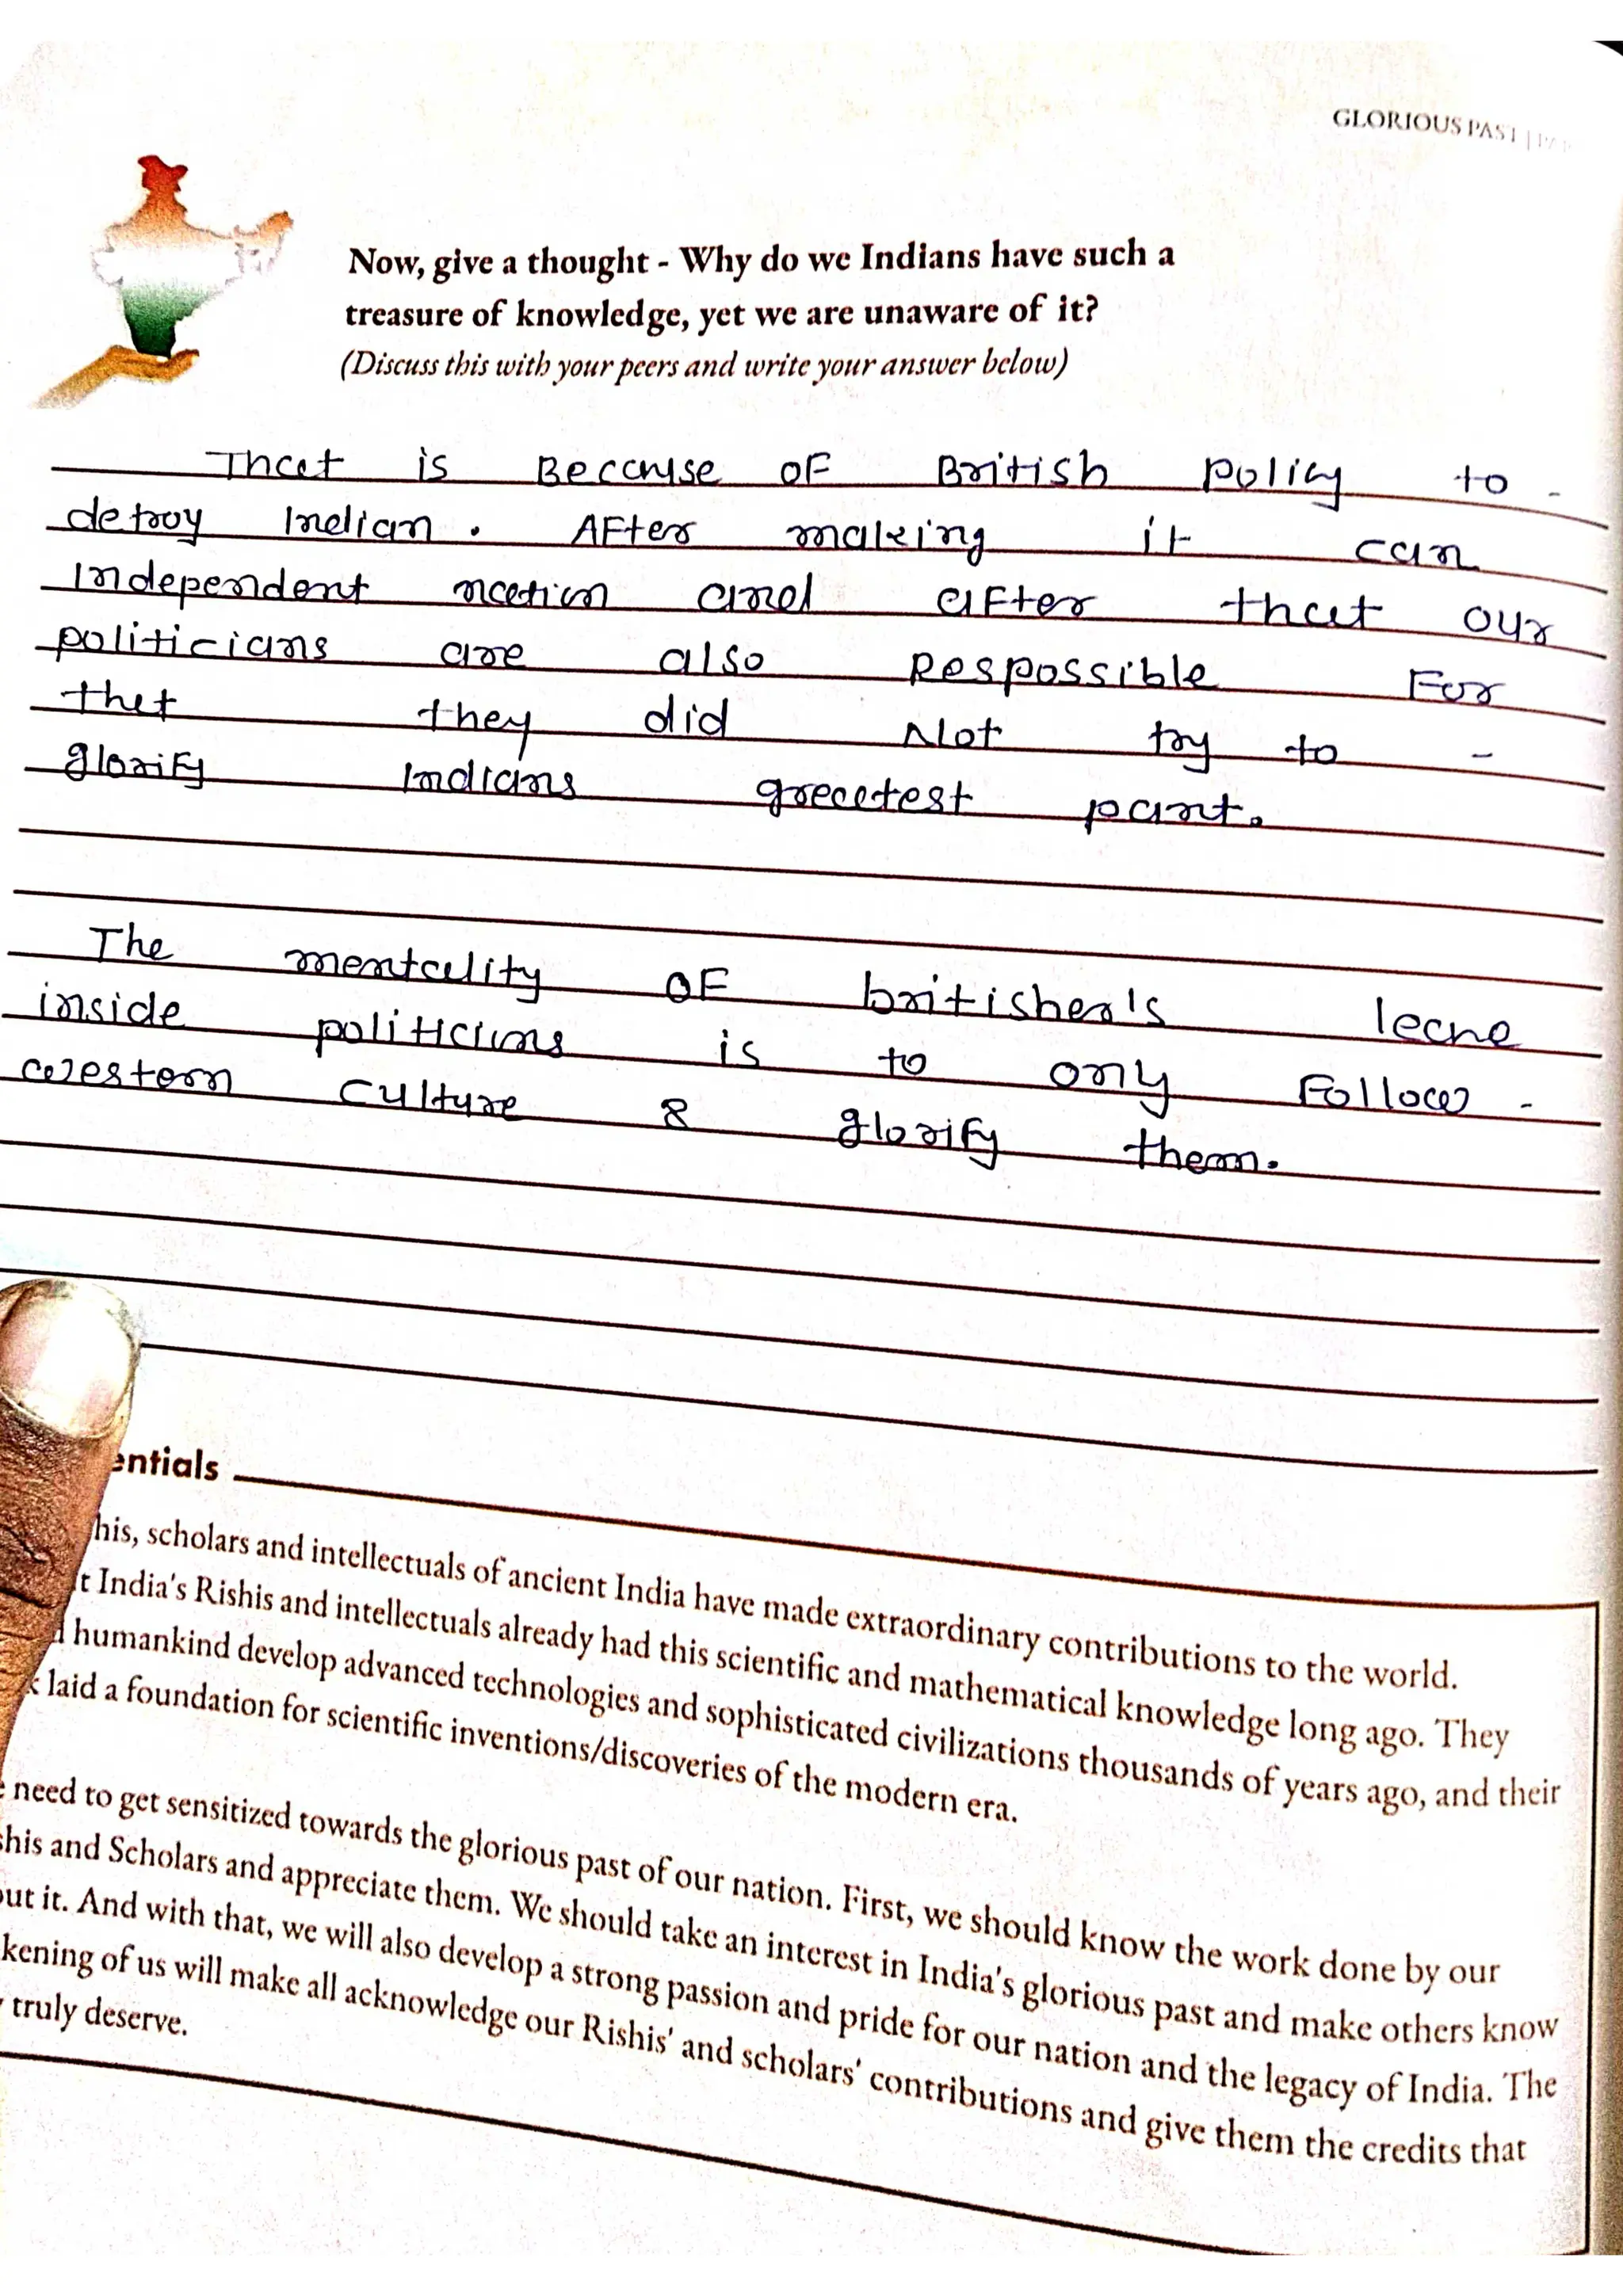 GLORIOUS PAST |
Now, give a thought - Why do we Indians have such a
treasure of knowledge, yet we are unaware of it?
(Discuss this with your peers and write your answer below)
That is Because of British policy to -
detroy Indian. After making it an
Independent nation and after that our
politicians are also Respossible For
thet they did Not try to -
glorify Indians greatest part.
The mentality of britisher's
inside politicians is to only Follow -
western culture & glorify them.
entials
his, scholars and intellectuals of ancient India have made extraordinary contributions to the world.
t India's Rishis and intellectuals already had this scientific and mathematical knowledge long ago. They
humankind develop advanced technologies and sophisticated civilizations thousands of years ago, and their
k laid a foundation for scientific inventions/discoveries of the modern era.
need to get sensitized towards the glorious past of our nation. First, we should know the work done by our
shis and Scholars and appreciate them. We should take an interest in India's glorious past and make others know
out it. And with that, we will also develop a strong passion and pride for our nation and the legacy of India. The
kening of us will make all acknowledge our Rishis' and scholars' contributions and give them the credits that
truly deserve.